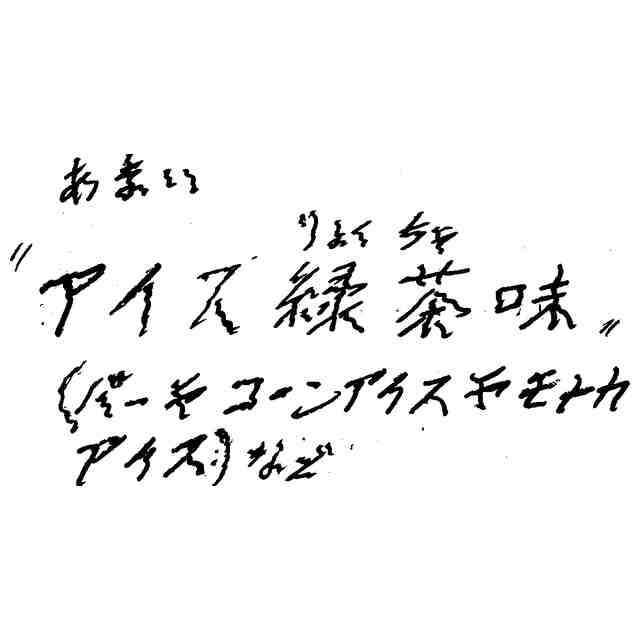 あまい
りょくちゃ
"アイス緑茶味"
(バーやコーンアイスやモナカ
アイス)など